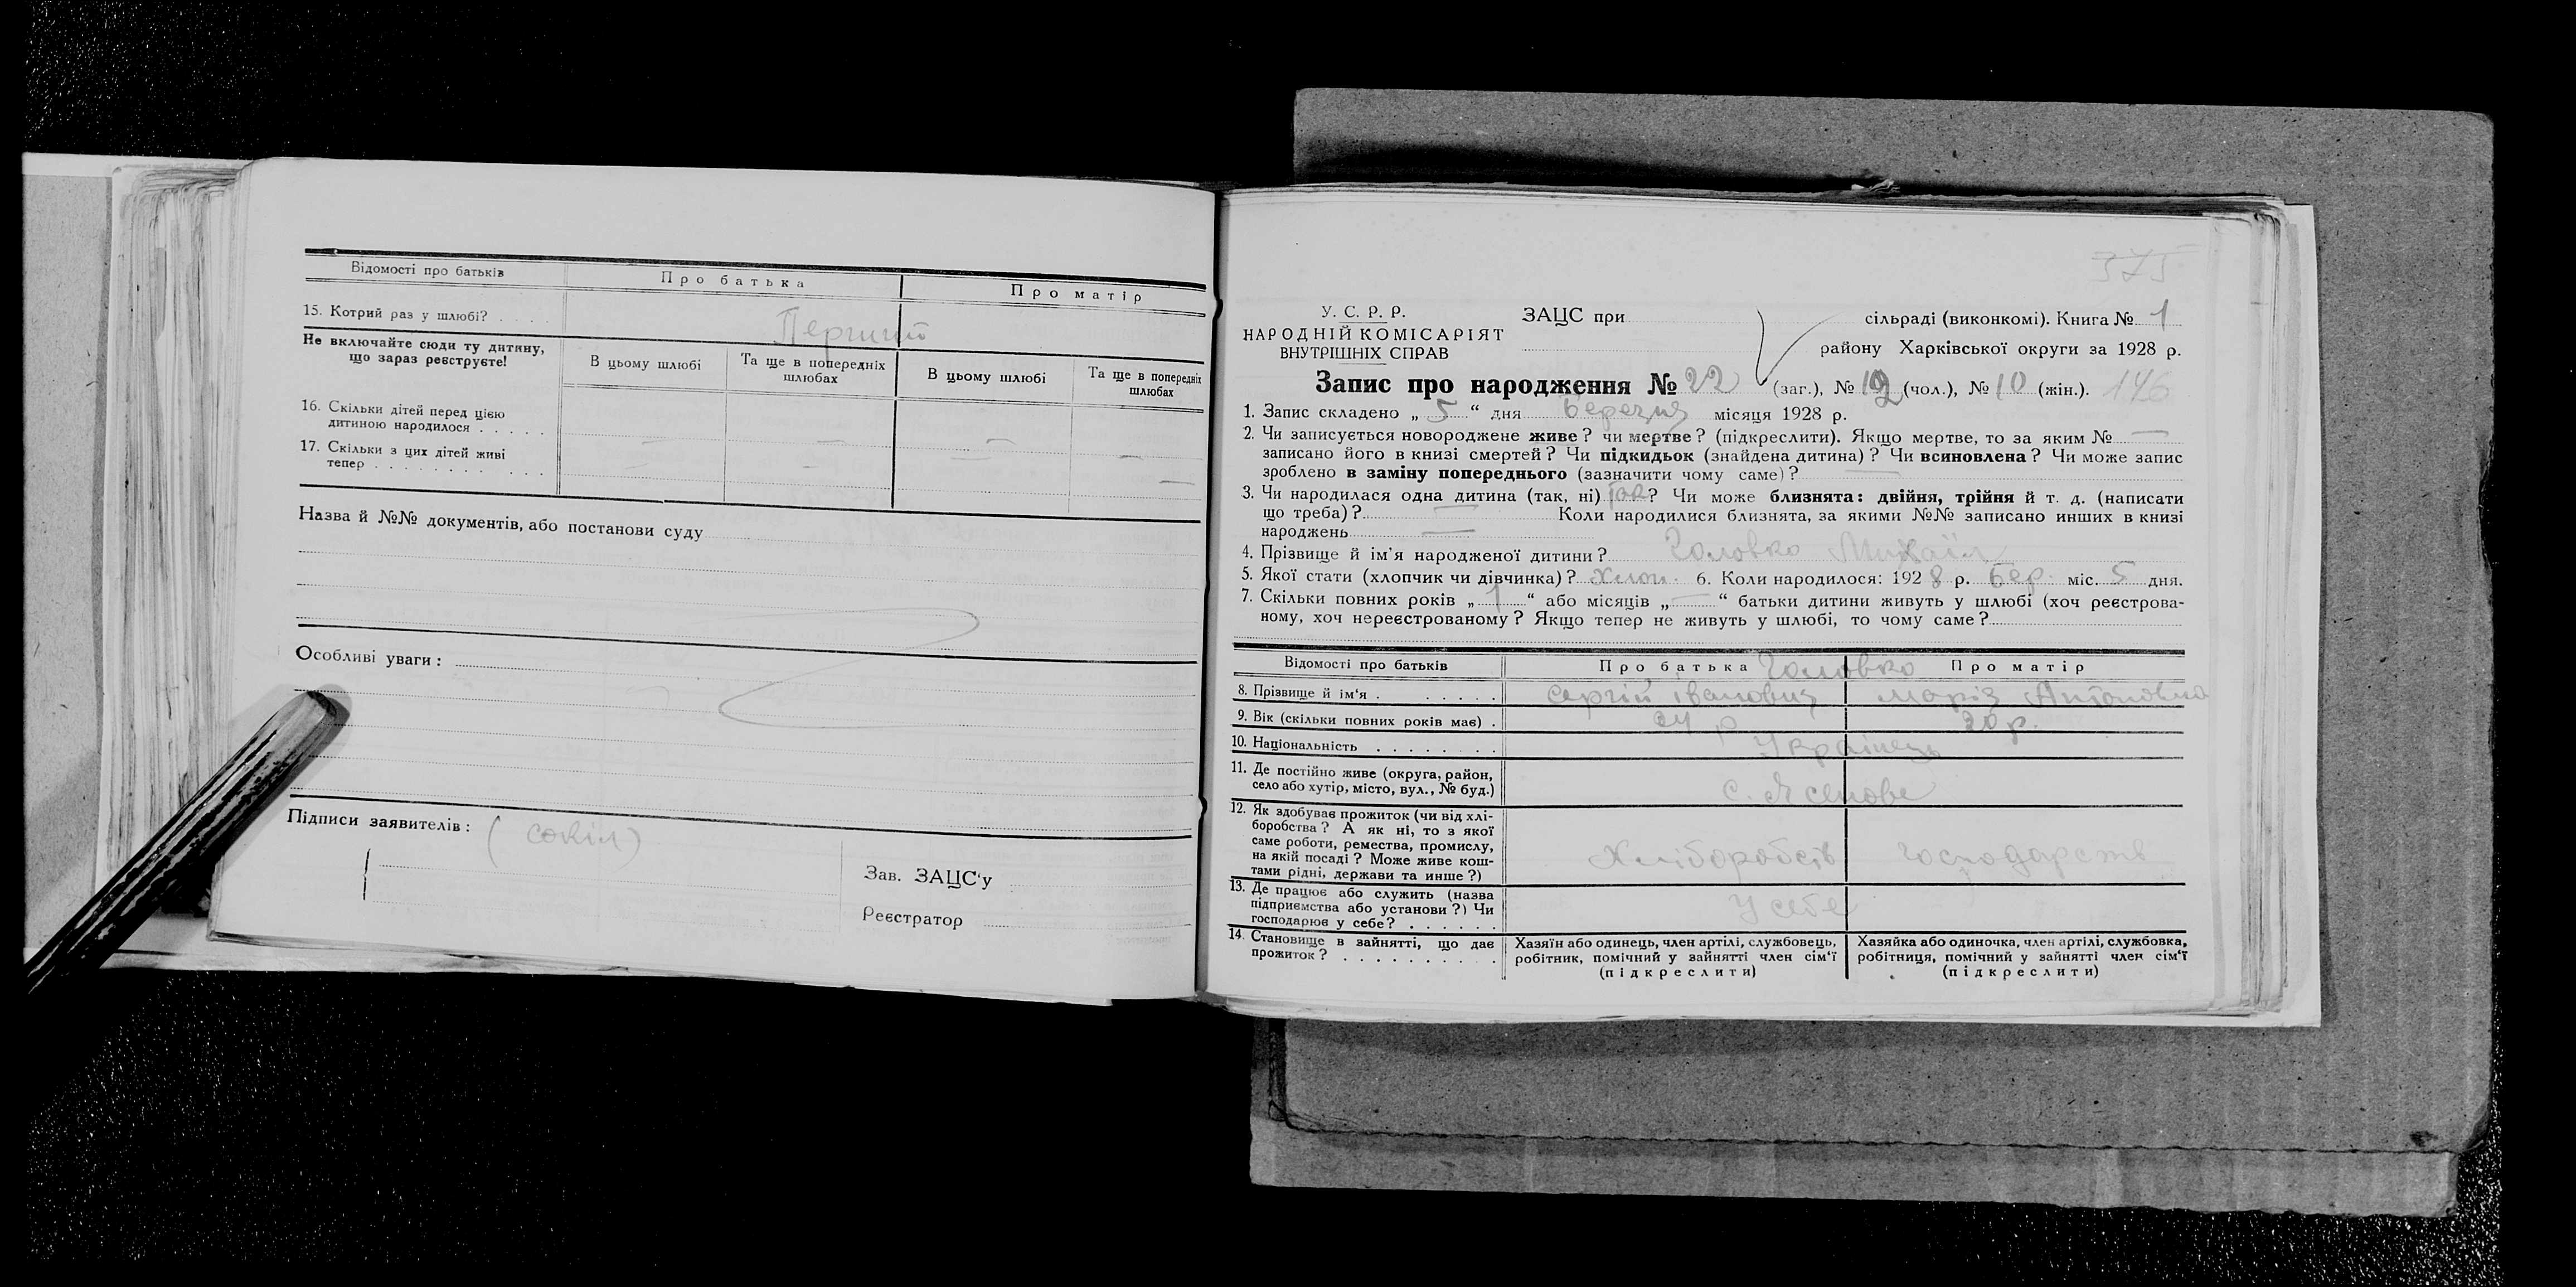 Відомості про батьків
Про батька
Про матір
15. Котрий раз у шлюбі? . . . .
Перший
Не включайте сюди ту дитину,
що зараз реєструєте!
В цьому шлюбі
Та ще в попередніх
шлюбах
В цьому шлюбі
Та ще в попередніх
шлюбах
16. Скільки дітей перед цією
дитиною народилося . . . . .
— — —
17. Скільки з цих дітей живі
тепер . . . . . . . . . . .
— — — —
Назва й №№ документів, або постанови суду
Особливі уваги:
Підписи заявителів: (сокіл)
Зав. ЗАЦС'у
Реєстратор
375
У. С. Р. Р.
НАРОДНІЙ КОМІСАРІЯТ
ВНУТРІШНІХ СПРАВ
ЗАЦС при
сільраді (виконкомі). Книга № 1
району Харківської округи за 1928 р.
Запис про народження № 22 (заг.), № 12 (чол.), № 10 (жін.). 146
1. Запис складено „ 5 “ дня Березня місяця 1928 р.
2. Чи записується новороджене живе? чи мертве? (підкреслити). Якщо мертве, то за яким № —
записано його в книзі смертей? Чи підкидьок (знайдена дитина)? Чи всиновлена? Чи може запис
зроблено в заміну попереднього (зазначити чому саме)? —
3. Чи народилася одна дитина (так, ні) так? Чи може близнята: двійня, трійня й т. д. (написати
що треба)? — Коли народилися близнята, за якими №№ записано инших в книзі
народжень —
4. Прізвище й ім'я народженої дитини? Головко Михаїл
5. Якої стати (хлопчик чи дівчинка)? Хлоп. 6. Коли народилося: 1928 р. Бер. міс. 5 дня.
7. Скільки повних років „ 1 “ або місяців „ — “ батьки дитини живуть у шлюбі (хоч реєстрова-
ному, хоч нереєстрованому? Якщо тепер не живуть у шлюбі, то чому саме?
Відомості про батьків
Про батька
Головко
Про матір
8. Прізвище й ім'я . . . . . . .
Сергій Іванович
Марія Антоновна
9. Вік (скільки повних років має) .
24 р
20 р.
10. Національність . . . . . . . .
Українець
11. Де постійно живе (округа, район,
село або хутір, місто, вул., № буд.)
с. Ясенове
12. Як здобуває прожиток (чи від хлі-
боробства? А як ні, то з якої
саме роботи, ремества, промислу,
на якій посаді? Може живе кош-
тами рідні, держави та инше?)
Хліборобств
господарств
13. Де працює або служить (назва
підприємства або установи?) Чи
господарює у себе? . . . . . .
У себе
14. Становище в зайнятті, що дає
прожиток? . . . . . . . . . .
Хазяїн або одинець, член артілі, службовець,
робітник, помічний у зайнятті член сім'ї
(підкреслити)
Хазяйка або одиночка, член артілі, службовка,
робітниця, помічний у зайнятті член сім'ї
(підкреслити)